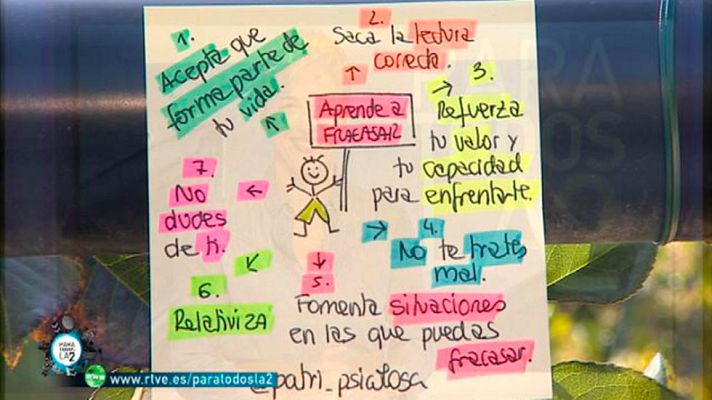 1.
Acepta que
forma parte de
tu vida.
2.
Saca la lectura
correcta.
Aprende a
FRACASAR
3.
Refuerza
tu valor y
tu capacidad
para enfrentarte.
4.
No te trates
mal.
5.
Fomenta situaciones
en las que puedas
fracasar.
6.
Relativiza
7.
No
dudes
de ti.
@patri_psicologa
LA2
www.rtve.es/paratodosla2